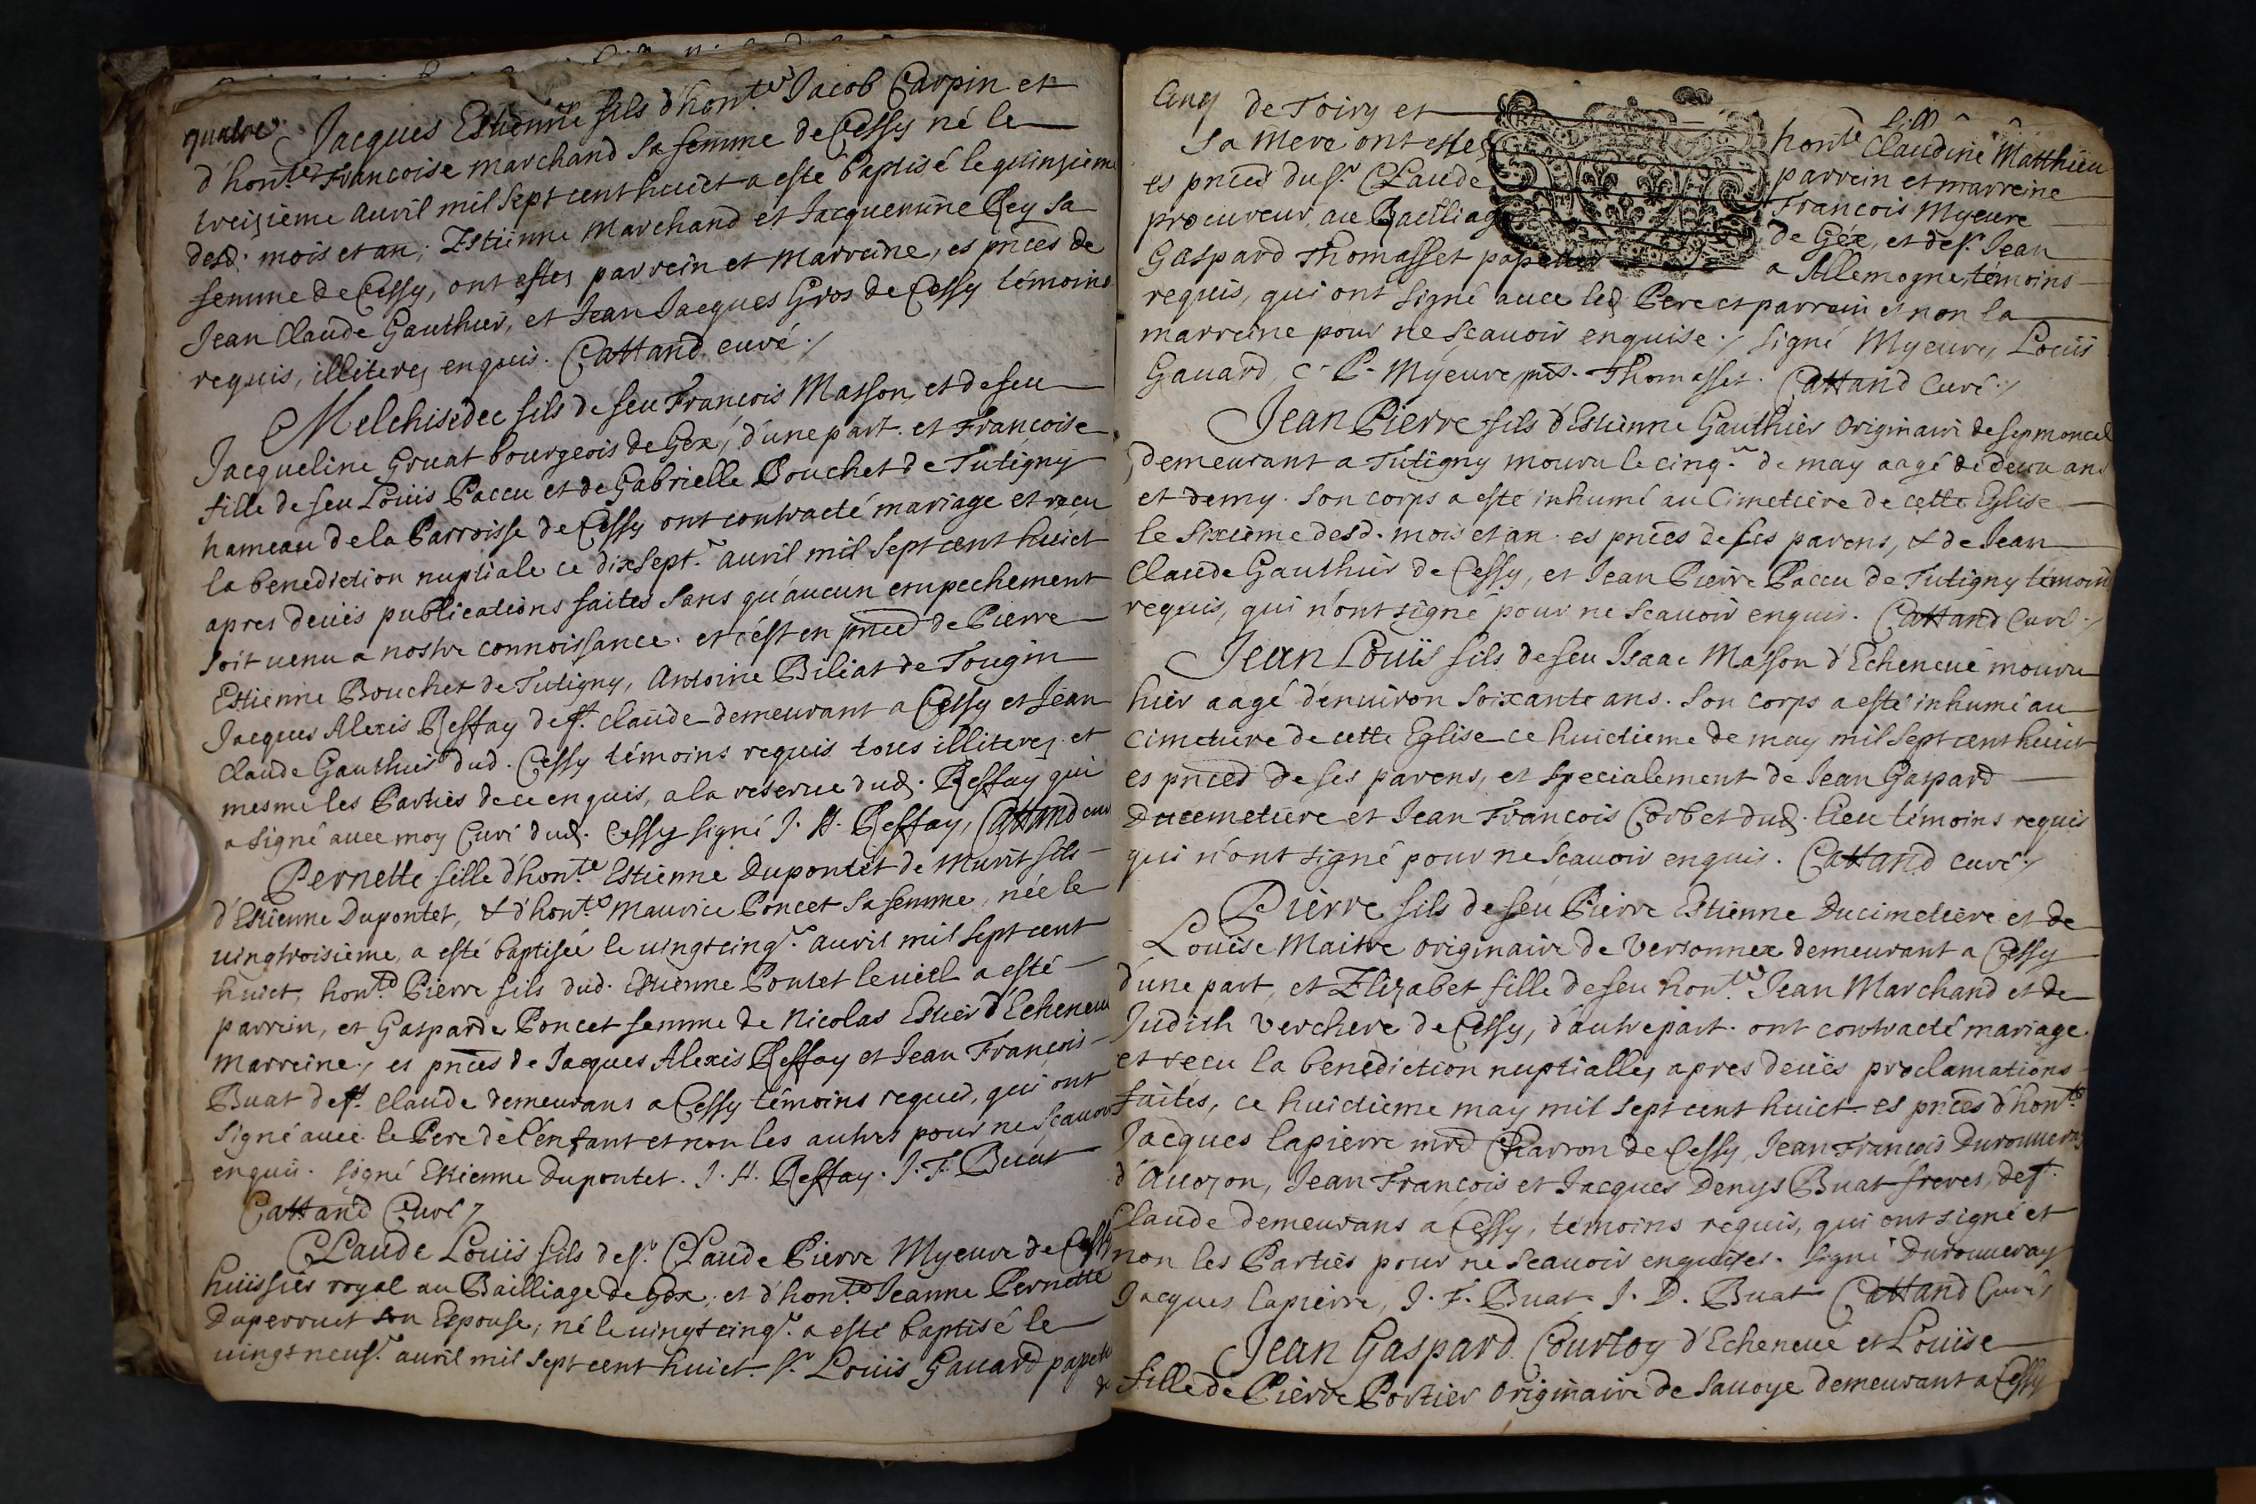 quatre
Jacques Estienne fils d'hon.te Jacob Carpin et
d'hon.te Francoise Marchand sa femme de Cessy né le
treizieme auril mil sept cent huict a esté baptisé le quinzieme
desd. mois et an; Estienne Marchand et Jacquemine Rey sa
femme de Cessy, ont estes parrein et Marreine, es pnces de
Jean Claude Gauthier, et Jean Jacques Gros de Cessy témoins
requis, illiterez enquis. Cattand curé./
Melchisedec fils de feu Francois Masson et de feu
Jacqueline Gruat bourgeois de Gex, d'une part. et Francoise
fille de feu Louis Paccu et de Gabrielle Bouchet de Tutigny
hameau de la Parroisse de Cessy ont contracté mariage et reçu
la benediction nuptiale ce dixsept.e auril mil sept cent huict
apres deües publications faites sans qu'aucun empechement
soit uenu a nostre connoissance. et c'est en pnce de Pierre
Estienne Bouchet de Tutigny, Antoine Biliat de Tougin
Jacques Alexis Reffay de St. Claude demeurant a Cessy et Jean
Claude Gauthier dud. Cessy témoins requis tous illiterez et
mesme les Parties de ce enquis, a la reserue dud. Reffay qui
a signé auec moy Curé dud. Cessy signé J. A. Reffay, Cattand curé
Pernette fille d'hon.te Estienne Dupontet de Murit fils
d'Estienne Dupontet, & d'hon.te Maurice Poncet sa femme, née le
uingtroisieme, a esté baptisée le uingtcinq.e auril mil sept cent
huict, hon.te Pierre fils dud. Estienne Pontet leuiel a esté
parrein, et Gasparde Poncet femme de Nicolas Estier d'Echeneue
marreine, es pnces de Jacques Alexis Reffay et Jean François
Buat de St. Claude demeurans a Cessy témoins requis, qui ont
signé auec le Pere de l'enfant et non les autres pour ne scauoir
enquis. signé Estienne Dupontet. J. A. Reffay. J. F. Buat
Cattand Curé/
Claude Louis fils de sr. Claude Pierre Myeure de Cessy
huissier royal au Bailliage de Gex, et d'hon.te Jeanne Pernette
Duperruit son Espouse; né le uingtcinq.e a esté baptisé le
uingtneuf.e auril mil sept cent huict. sr. Louis Gauard papetier
Cinq de Toiry et hon.te Claudine fille Matthieu
sa Mere ont estes parrein et marreine
es pnces du sr. Claude Francois Myeure
procureur au Bailliage de Gex, et de sr. Jean
Gaspard Thomasset papetier a Allemogne, témoins
requis, qui ont signé auec led Pere et parrain et non la
marreine pour ne scauoir enquise./ signé Myeure, Louis
Gauard, C. P. Myeure, Thomasset. Cattand Curé./
Jean Pierre fils d'Estienne Gauthier originaire de Sepmoncel
demeurant a Tutigny mouru le cinq.e de may aagé de deux ans
et demy. Son corps a esté inhumé au Cimetiere de cette Eglise
le sixieme desd. mois et an. es pnces de ses parens, & de Jean
Claude Gauthier de Cessy, et Jean Pierre Paccu de Tutigny témoins
requis, qui n'ont signé pour ne scauoir enquis. Cattand Curé./
Jean Louis fils de feu Isaac Masson d'Echeneue mouru
hier aagé d'enuiron soixante ans. son corps a esté inhumé au
cimetiere de cette Eglise ce huictieme de may mil sept cent huict
es pnces de ses parens, et specialement de Jean Gaspard
Ducemetiere et Jean Francois Corbet dud. lieu témoins requis
qui n'ont signé pour ne scauoir enquis. Cattand curé./
Pierre fils de feu Pierre Estienne Ducimetiere et de
Louise Maitre originaire de Versonnex demeurant a Cessy
d'une part, et Elizabet fille de feu hon.te Jean Marchand et de
Judith Verchere de Cessy, d'autre part. ont contracté mariage
et recu la benediction nuptialle, apres deües proclamations
faites, ce huictieme may mil sept cent huict es pnces d'hon.te
Jacques Lapierre mre Charron de Cessy, Jean François Durouueray
d'Auozon, Jean Francois et Jacques Denys Buat freres, de St.
Claude demeurans a Cessy, témoins requis, qui ont signé et
non les Parties pour ne scauoir enquises. signé Durouueray
Jacques Lapierre, J. F. Buat J. D. Buat Cattand Curé/
Jean Gaspard Courtoy d'Echeneue et Louise
fille de Pierre Portier originaire de Sauoye demeurant a Cessy